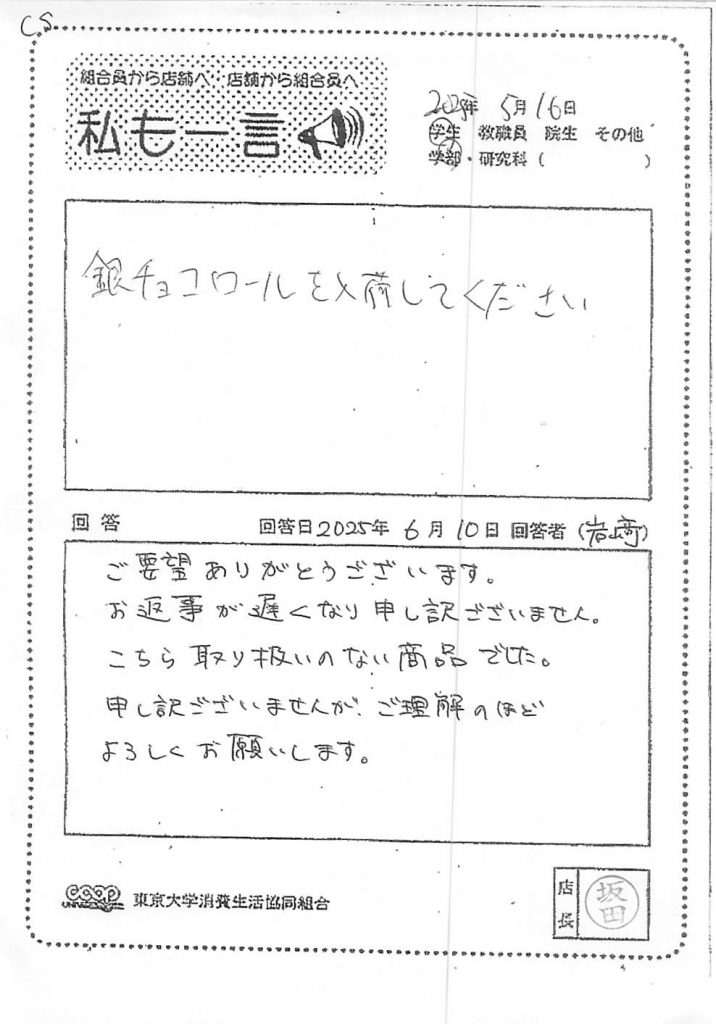 CS
組合員から店舗へ・店舗から組合員へ
私も一言
2025年 5月16日
学生 教職員 院生 その他
学部・研究科( )
銀チョコロールを入荷してください
回答 回答日2025年 6月10日 回答者(岩崎)
ご要望ありがとうございます。
お返事が遅くなり申し訳ございません。
こちら取り扱いのない商品でした。
申し訳ございませんが、ご理解のほど
よろしくお願いします。
coop 東京大学消費生活協同組合
店長 坂田